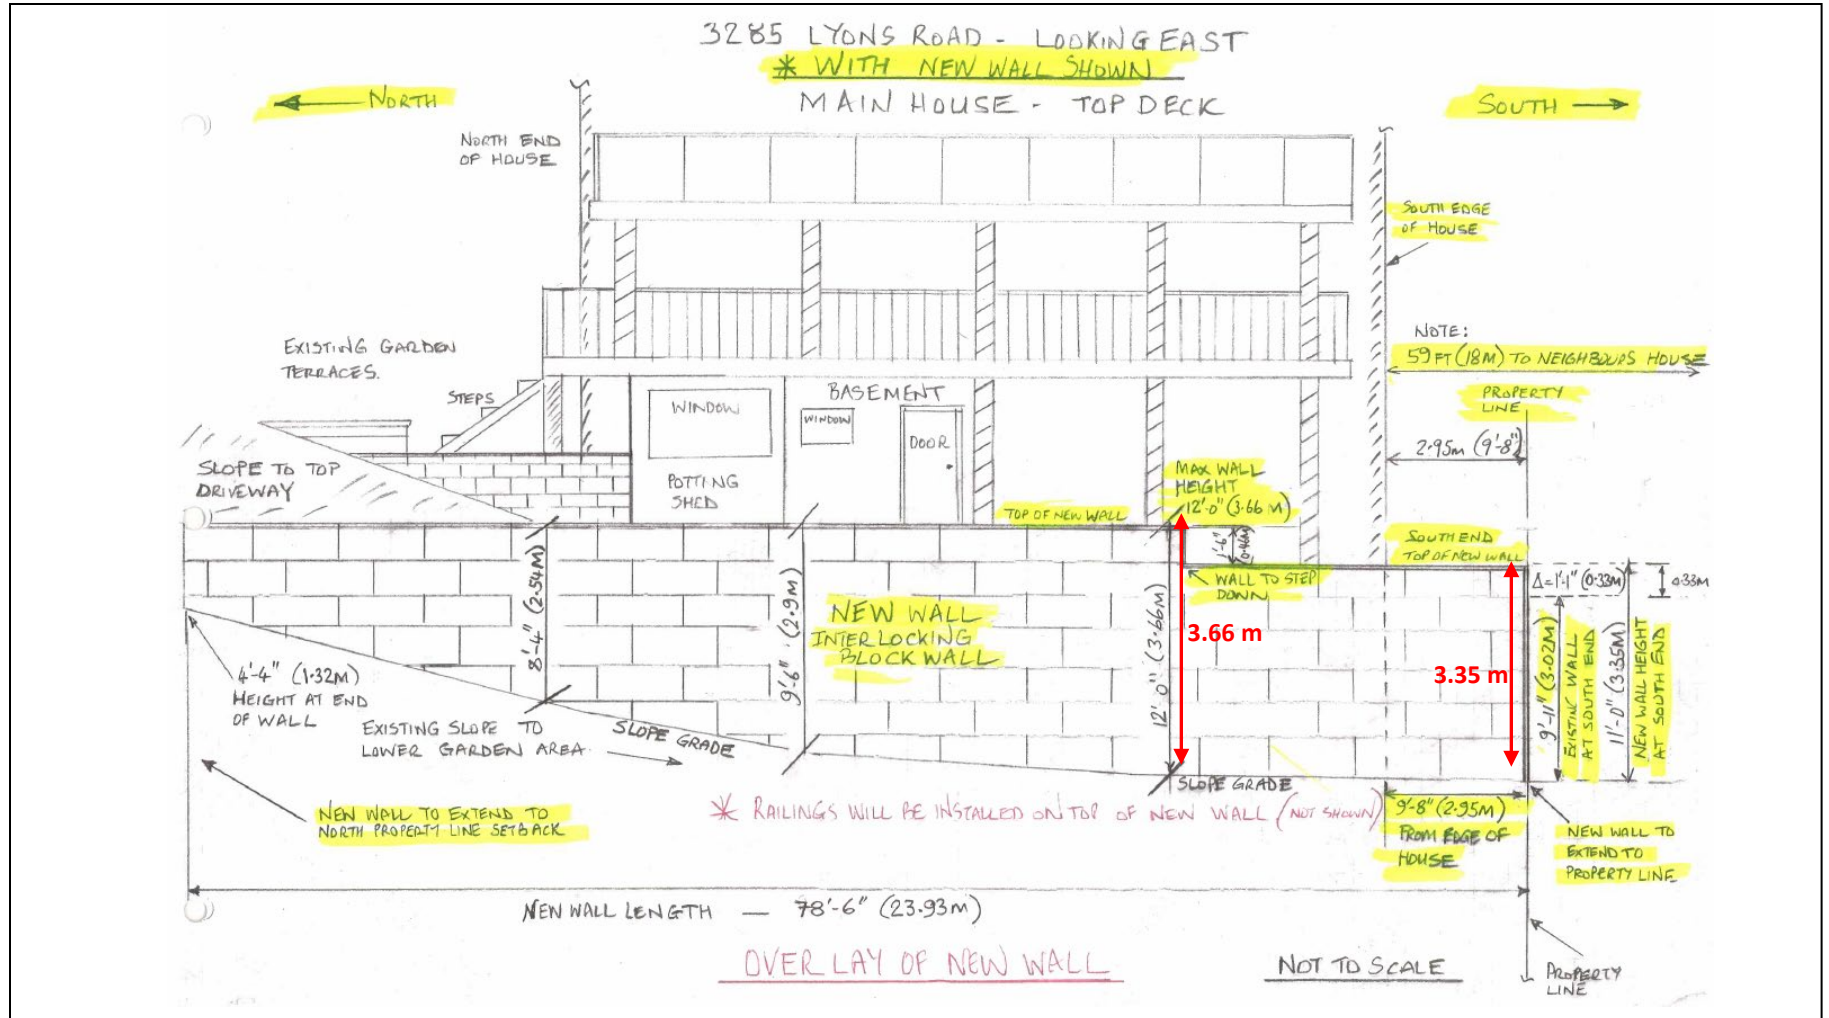 3285 LYONS ROAD - LOOKING EAST
* WITH NEW WALL SHOWN
MAIN HOUSE - TOP DECK
NORTH
SOUTH
NORTH END
OF HOUSE
SOUTH EDGE
OF HOUSE
NOTE:
59 FT (18M) TO NEIGHBOURS HOUSE
PROPERTY
LINE
2.95m (9'-8")
EXISTING GARDEN
TERRACES.
STEPS
WINDOW
BASEMENT
WINDOW
DOOR
POTTING
SHED
SLOPE TO TOP
DRIVEWAY
MAX WALL
HEIGHT
12'-0" (3.66 M)
TOP OF NEW WALL
1'-6"
(0.46M)
SOUTH END
TOP OF NEW WALL
WALL TO STEP
DOWN
Δ=1'-1" (0.33M)
0.33M
8'-4" (2.54M)
9'-6" (2.9M)
NEW WALL
INTERLOCKING
BLOCK WALL
12'-0" (3.66M)
3.66 m
3.35 m
9'-11" (3.02M)
EXISTING WALL
AT SOUTH END
11'-0" (3.35M)
NEW WALL HEIGHT
AT SOUTH END
4'-4" (1.32M)
HEIGHT AT END
OF WALL
EXISTING SLOPE TO
LOWER GARDEN AREA.
SLOPE GRADE
SLOPE GRADE
* RAILINGS WILL BE INSTALLED ON TOP OF NEW WALL (NOT SHOWN)
9'-8" (2.95M)
FROM EDGE OF
HOUSE
NEW WALL TO EXTEND TO
NORTH PROPERTY LINE SETBACK
NEW WALL TO
EXTEND TO
PROPERTY LINE
NEW WALL LENGTH — 78'-6" (23.93M)
OVERLAY OF NEW WALL
NOT TO SCALE
PROPERTY
LINE